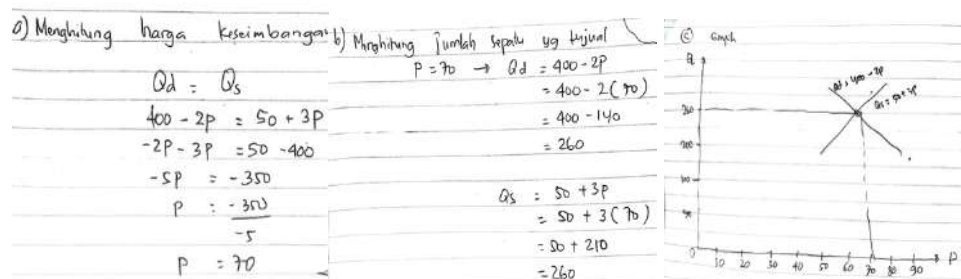 a) Menghitung harga keseimbangan
Qd = Qs
400 - 2P = 50 + 3P
-2P - 3P = 50 - 400
-5P = -350
P = -350
-5
P = 70
b) Menghitung jumlah sepatu yg terjual
P = 70 → Qd = 400 - 2P
= 400 - 2(70)
= 400 - 140
= 260
Qs = 50 + 3P
= 50 + 3(70)
= 50 + 210
= 260
c)
Qd = 400 - 2P
Qs = 50 + 3P
260
200
0 10 20 30 40 50 60 70 80 90 P